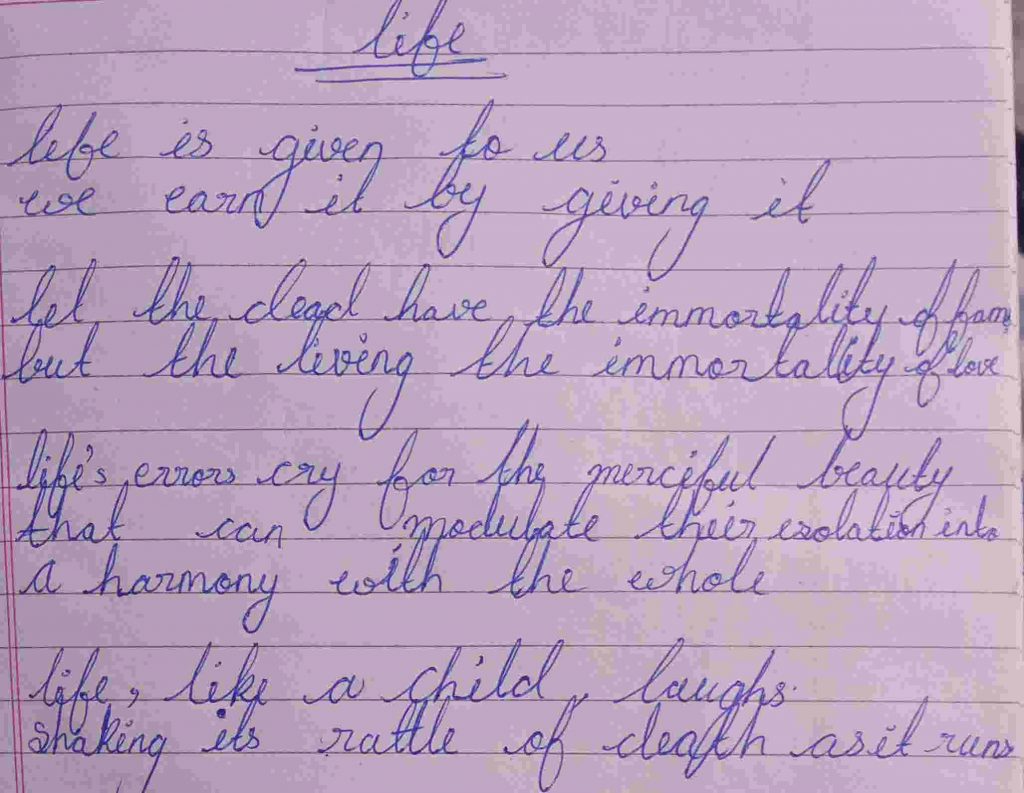 life
life is given to us
we earn it by giving it
let the dead have the immortality of fame
but the living the immortality of love
life's errors cry for the merciful beauty
that can modulate their isolation into
a harmony with the whole
life, like a child, laughs.
shaking its rattle of death as it runs